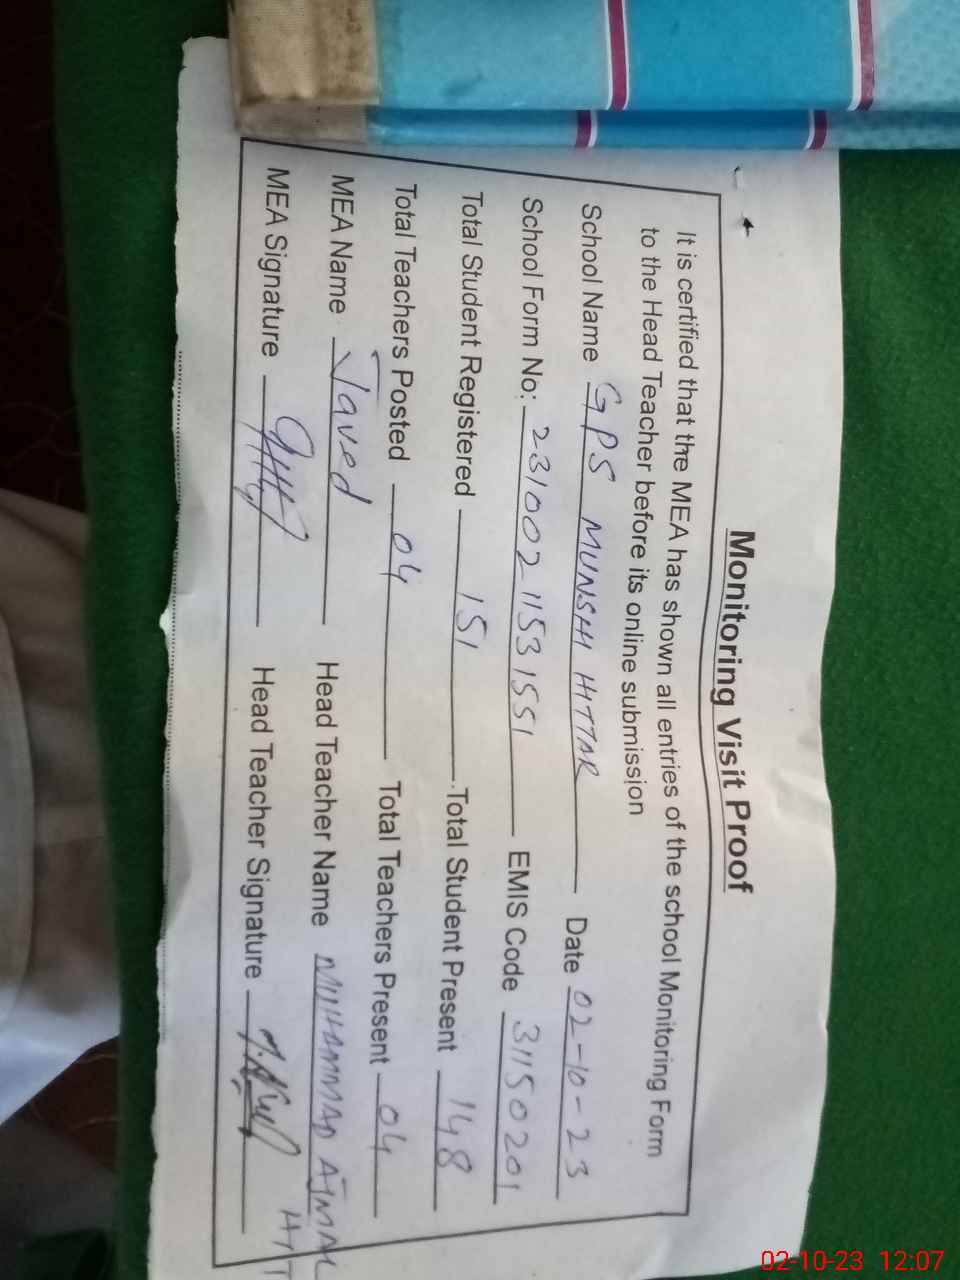 Monitoring Visit Proof
It is certified that the MEA has shown all entries of the school Monitoring Form
to the Head Teacher before its online submission
School Name GPS MUNSHI HITTAR Date 02-10-23
School Form No: 231002 1153 1551 EMIS Code 31150201
Total Student Registered 151 Total Student Present 148
Total Teachers Posted 04 Total Teachers Present 04
MEA Name Javed Head Teacher Name MUHAMMAD AJMAL HT
MEA Signature Head Teacher Signature
02-10-23 12:07